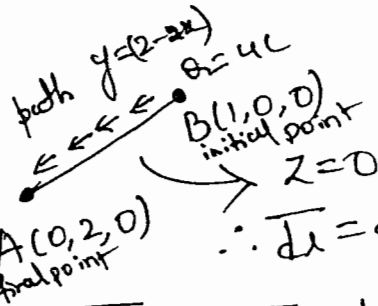 path y=(2-2x)
Q=4C
B(1,0,0)
initial point
Z=0
A(0,2,0)
final point
∴ dl =